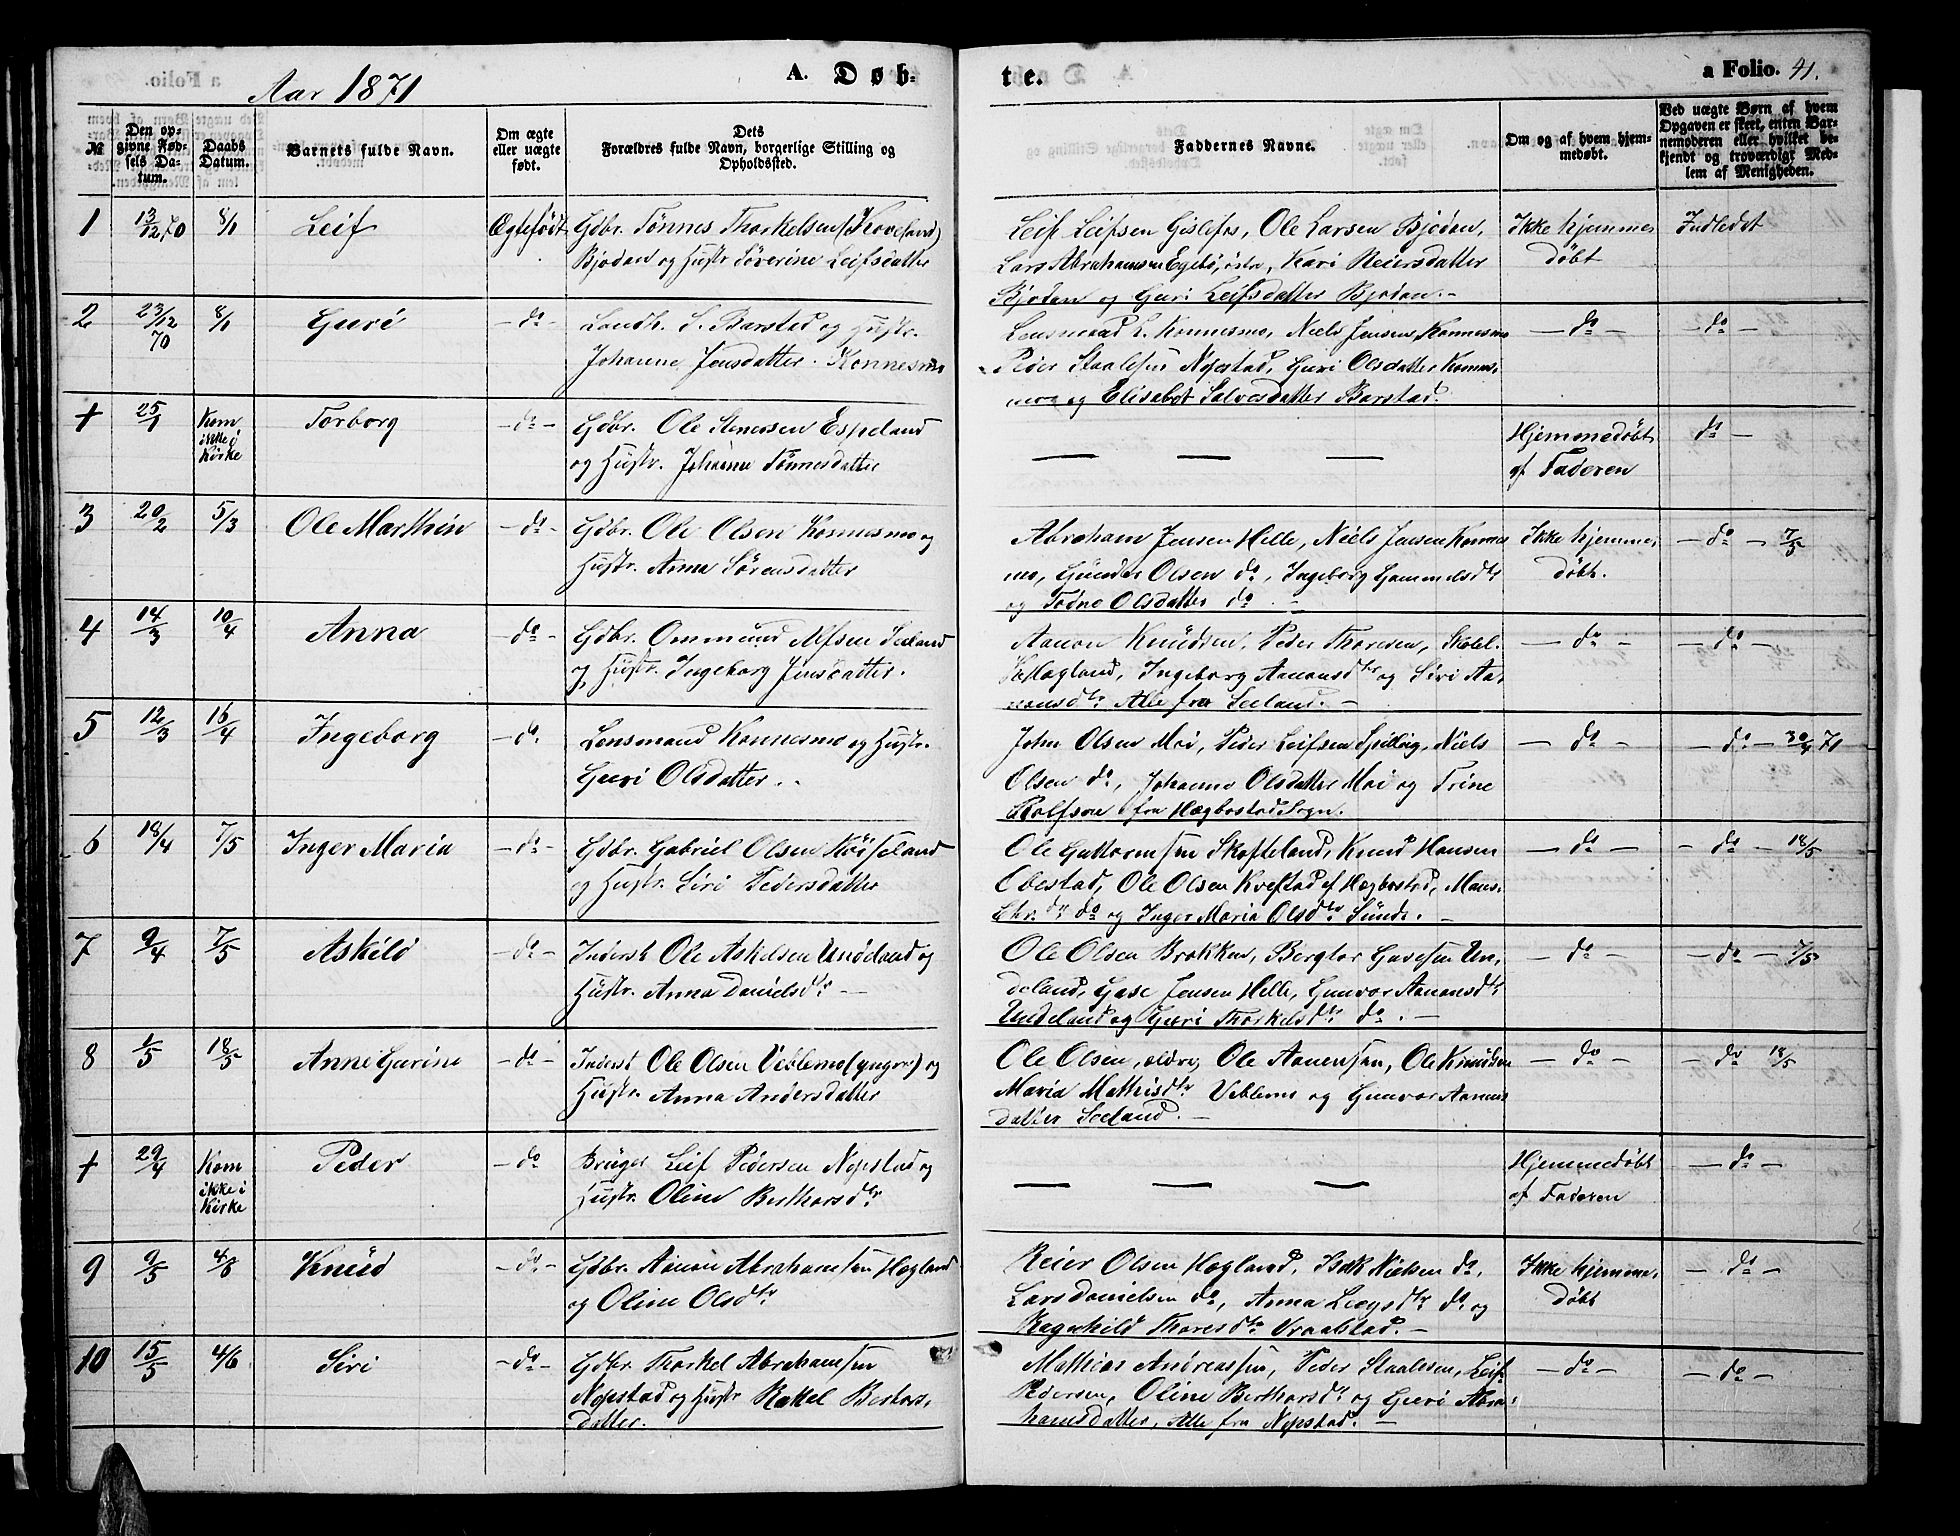 Aar 1871
A. Døb-
te.
a Folio. 41.
№
Den op-
givne Fød-
sels Da-
tum.
Daabs
Datum.
Barnets fulde Navn.
Om ægte
eller uægte
født.
Dets
Forældres fulde Navn, borgerlige Stilling og
Opholdssted.
Faddernes Navne.
Om og af hvem hjem-
medøbt.
Ved uægte Børn af hvem
Opgaven er skeet, enten Bar-
nemoderen eller hvilket be-
kjendt og troværdigt Med-
lem af Menigheden.
1
13/12 70
8/1
Leif
Ægtefødt
Gdbr. Tönnes Thorkelsen (Skoveland)
Bjodan og Hustr Söverine Leifsdatter
Leif Leifsen Gislefos, Ole Larsen Bjodan,
Lars Abrahamsen Egebö, östre, Kari Reiersdatter
Bjodan og Guri Leifsdatter Bjodan. -
Ikke hjemme
döbt
Indledet
2
23/12
70
8/1
Guri
- do -
Landh. S. Barstad og Hustr.
Johanne Jensdatter. Konnesmo
Lensmand L. Konnesmo, Niels Jensen Konnesmo
Peder Staalesen Nopstad, Guri Olsdatter Konnes,
mo og Elisabet Salvesdatter Barstad.
- do -
- do -
+
25/1
Kom
ikke i
Kirke
Torborg
- do -
Gdbr. Ole Stenersen Espeland
og Hustr. Johanne Tönnesdatter
— — —
Hjemmedöbt
af Faderen
do -
3
20/2
5/3
Ole Marthin
- do -
Gdbr. Ole Olsen Konnesmo og
Hustr. Anna Sörensdatter
Abraham Jensen Helle, Niels Jensen Konnes
mo, Gunder Olsen do, Ingeborg Gammelsdtr
og Todne Olsdatter do. -
Ikke hjemme,
döbt.
- do - 7/5
4
14/3
10/4
Anna
- do -
Gdbr. Ommund Alfsen Seeland
og Hustr. Ingeborg Jensdatter.
Aanon Knudsen, Peder Thoresen, Skolel.
Hægland, Ingeborg Aanonsdtr og Siri Aa,
nonsdtr Alle fra Seeland. -
- do -
- do -
5
12/3
16/4
Ingeborg
- do.
Lensmand Konnesmo og Hustr.
Guri Olsdatter.
John Olsen Moi, Peder Leifsen Spilling, Niels
Olsen do, Johanne Olsdatter Moi og Trine
Rolfsen fra Hægbostad Sogn.
- do -
- do - 30/4 71
6
18/4
7/5
Inger Maria
- do -
Gdbr. Gabriel Olsen Skörseland
og Hustr. Siri Pedersdatter
Ole Guttormsen Skofteland, Knud Hansen
Obestad, Ole Olsen Kvestad af Hægbostad, Mans.
Chr. dtr do og Inger Maria Olsdtr Sunde. -
- do -
- do - 18/5
7
9/4
7/5
Askild
- do -
Inderst Ole Askelsen Undeland og
Hustr. Anna Danielsdtr -
Ole Olsen Brakken, Bergtor Gavesen Un,
deland, Gase Jensen Helle, Gunvor Aanonsdtr
Undeland og Guri Thorkelsdtr do. -
- do -
- do - 7/5
8
1/5
18/5
Anne Gurine
- do -
Inderst Ole Olsen Veblemo (yngre) og
Hustr. Anna Andersdatter
Ole Olsen, ældre, Ole Aanensen, Ole Knudsen
Maria Mathisdtr Veblemo og Gunvor Aanens
datter Seeland. -
- do -
- do 18/5
+
29/4
Kom
ikke i
Kirke
Peder
- do
Bruger Leif Pedersen Nopstad og
Hustr. Oline Berthorsdtr
— — —
Hjemmedöbt
af Faderen
- do -
9
9/5
4/6
Knud
- do -
Gdbr. Aanen Abrahamsen Hægland
og Oline Olsdtr
Reier Olsen Hægland, Isak Nielsen do,
Lars Danielsen do, Anna Liegsdtr do. og
Ragnhild Thoresdtr Vraalstad. -
Ikke hjemme,
döbt
- do -
10
15/5
4/6
Siri
- do -
Gdbr. Thorkel Abrahamsen
Nopstad og Hustr Rakel Berthors,
datter.
Mathias Andreassen, Peder Staalesen, Leif
Pedersen, Oline Berthorsdtr og Guri Abra,
hamsdatter, Alle fra Nopstad. -
- do -
- do -